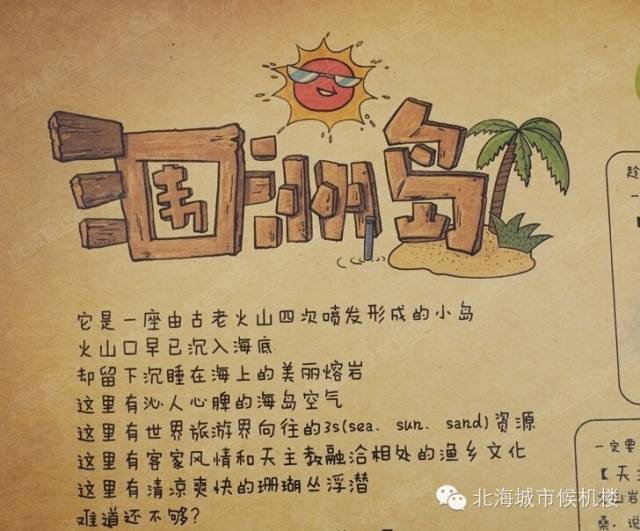 涠洲岛
它是一座由古老火山四次喷发形成的小岛
火山口早已沉入海底
却留下沉睡在海上的美丽熔岩
这里有沁人心脾的海岛空气
这里有世界旅游界向往的3s(sea. sun. sand)资源
这里有客家风情和天主教融洽相处的渔乡文化
这里有清凉爽快的珊瑚丛浮潜
难道还不够?
趁
一定要
【天主
山岩
桑.说
北海城市候机楼